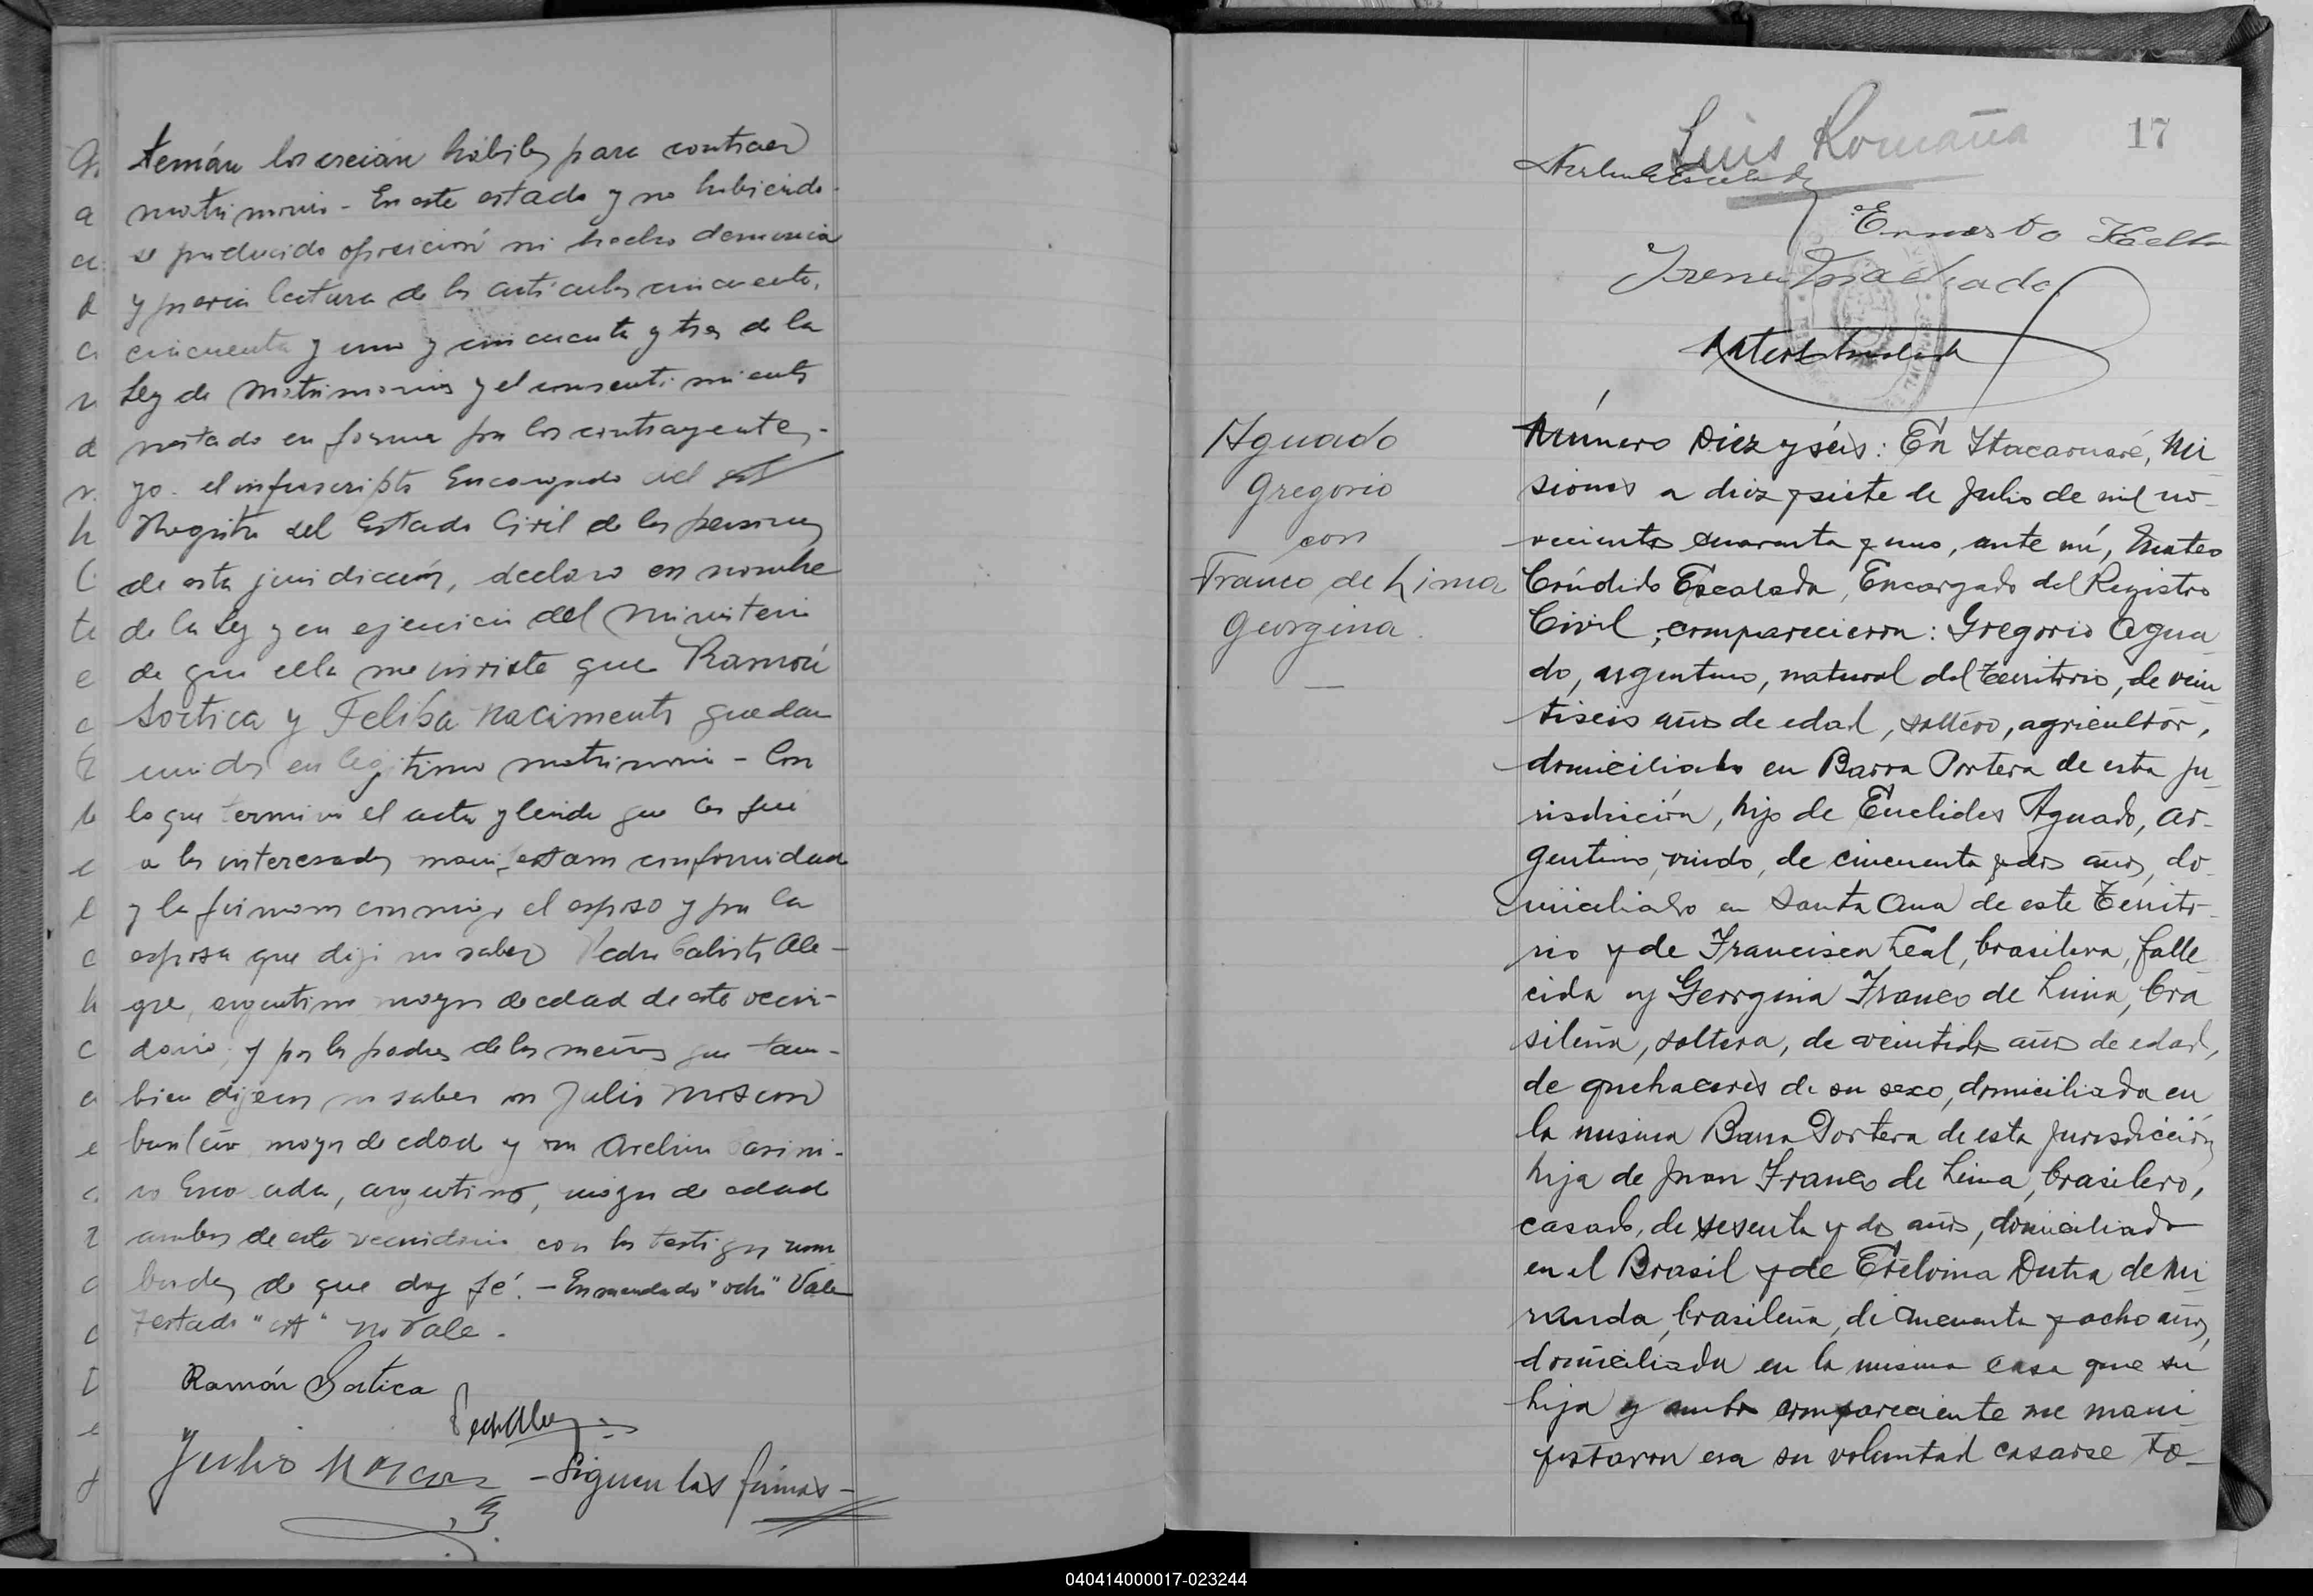 temán los creian hábiles para contraer
matrimonio - En este estado y no habiendo-
se producido oposición ni hecho denuncia
y previa lectura de los articulos cincuenta,
cincuenta y uno y cincuenta y tres de la
Ley de Matrimonio y el consentimiento
prestado en forma por los contrayentes,-
yo el infrascripto Encargado del est
Registro del Estado Civil de las personas
de esta juridicción, declaro en nombre
de la Ley y en ejercicio del Ministerio
de que ella me inviste que Ramón
Sortica y Felisa Nacimento quedan
unidos en legitimo matrimonio - Con
lo que termino el acta y leida que les fue
a los interesados manifestaron conformidad
y la firmaron conmigo el esposo y por la
esposa que dijo no saber Pedro Calisto Ale-
gre, argentino mayor de edad de este vecin-
dario, y por los padres de los que tam-
bien dijeron no saber Julio Moscon
mayor de edad y Avelino
argentino, mayor de edad
ambos de este vecindario con los testigos nom
brados de que doy fé. - Enmendado "ocho" Vale
Testado "est" no Vale.
Ramón Sortica
Julio Moscon
- Siguen las firmas -
17
Luis Romaña
Ernesto
Machado
Aguado
Gregorio
con
Franco de Lima
Georgina.
Número Diez y séis: En Itacaruaré, Mi
siones a diez y siete de Julio de mil no-
vecientos cuarenta y uno, ante mí, Mateo
Cándido Escalada, Encargado del Registro
Civil, comparecieron: Gregorio Agua
do, argentino, natural del Territorio, de vein
tiseis años de edad, soltero, agricultor,
domiciliado en Barra Portera de esta ju
risdicción, hijo de Euclides Aguado, ar-
gentino, viudo, de cincuenta y dos años, do
miciliado en Santa Ana de este Territo-
rio y de Francisca Leal, brasilera, falle
cida y Georgina Franco de Lima, bra
sileña, soltera, de veintidos años de edad,
de quehaceres de su sexo, domiciliada en
la misma Barra Portera de esta jurisdicción
hija de Juan Franco de Lima, brasilero,
casado, de sesenta y dos años, domiciliado
en el Brasil y de Etelvina Dutra de Mi
randa, brasileña, de cincuenta y ocho años,
domiciliada en la misma casa que su
hija y ambos compareciente me mani
festaron era su voluntad casarse to-
040414000017-023244